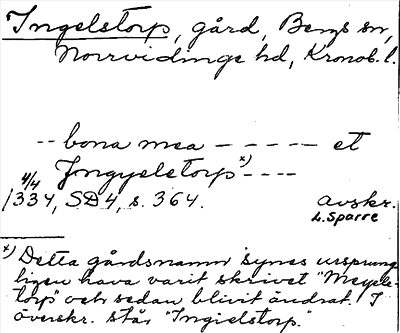 Ingelstorp, gård, Bergs sn,
Norrvidinge hd, Kronob. l.
-- bona mea ----- et
Jngyelstorp x) ----
4/4
1334, SD4, s. 364. avskr.
L. Sparre
x) Detta gårdsnamn synes ursprung-
ligen hava varit skrivet "Meyels-
torp" och sedan blivit ändrat. I
överskr. står "Ingielstorp."